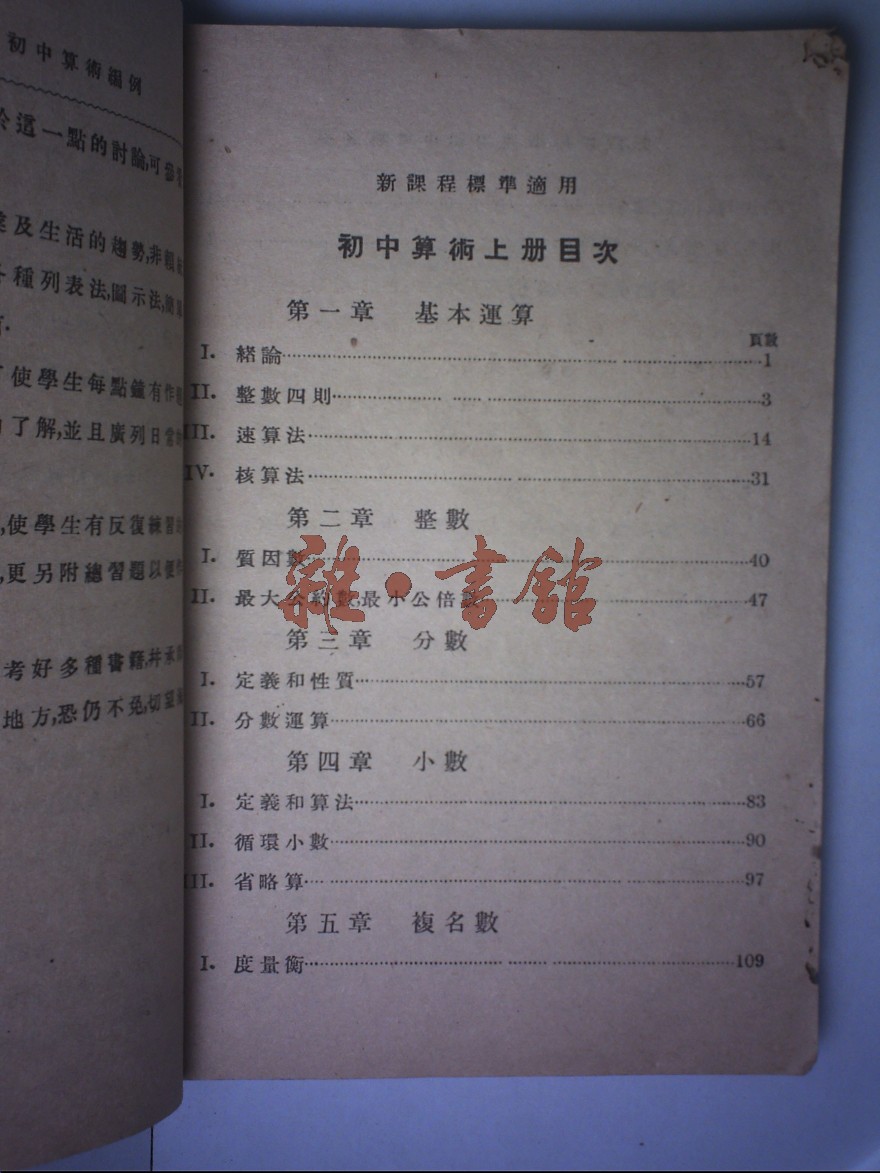 初中算術編例
於這一點的討論,可參
及生活的趨勢,非賴
種列表法,圖示法,簡
使學生每點鐘有作
了解,並且廣列日常
,使學生有反復練習
,更另附總習題以便
考好多種書籍,并承
地方,恐仍不免,切望
新課程標準適用
初中算術上册目次
第一章 基本運算
頁數
I. 緒論 1
II. 整數四則 3
III. 速算法 14
IV. 核算法 31
第二章 整數
I. 質因數 40
II. 最大公約數,最小公倍數 47
雜·書館
第三章 分數
I. 定義和性質 57
II. 分數運算 66
第四章 小數
I. 定義和算法 83
II. 循環小數 90
III. 省略算 97
第五章 複名數
I. 度量衡 109